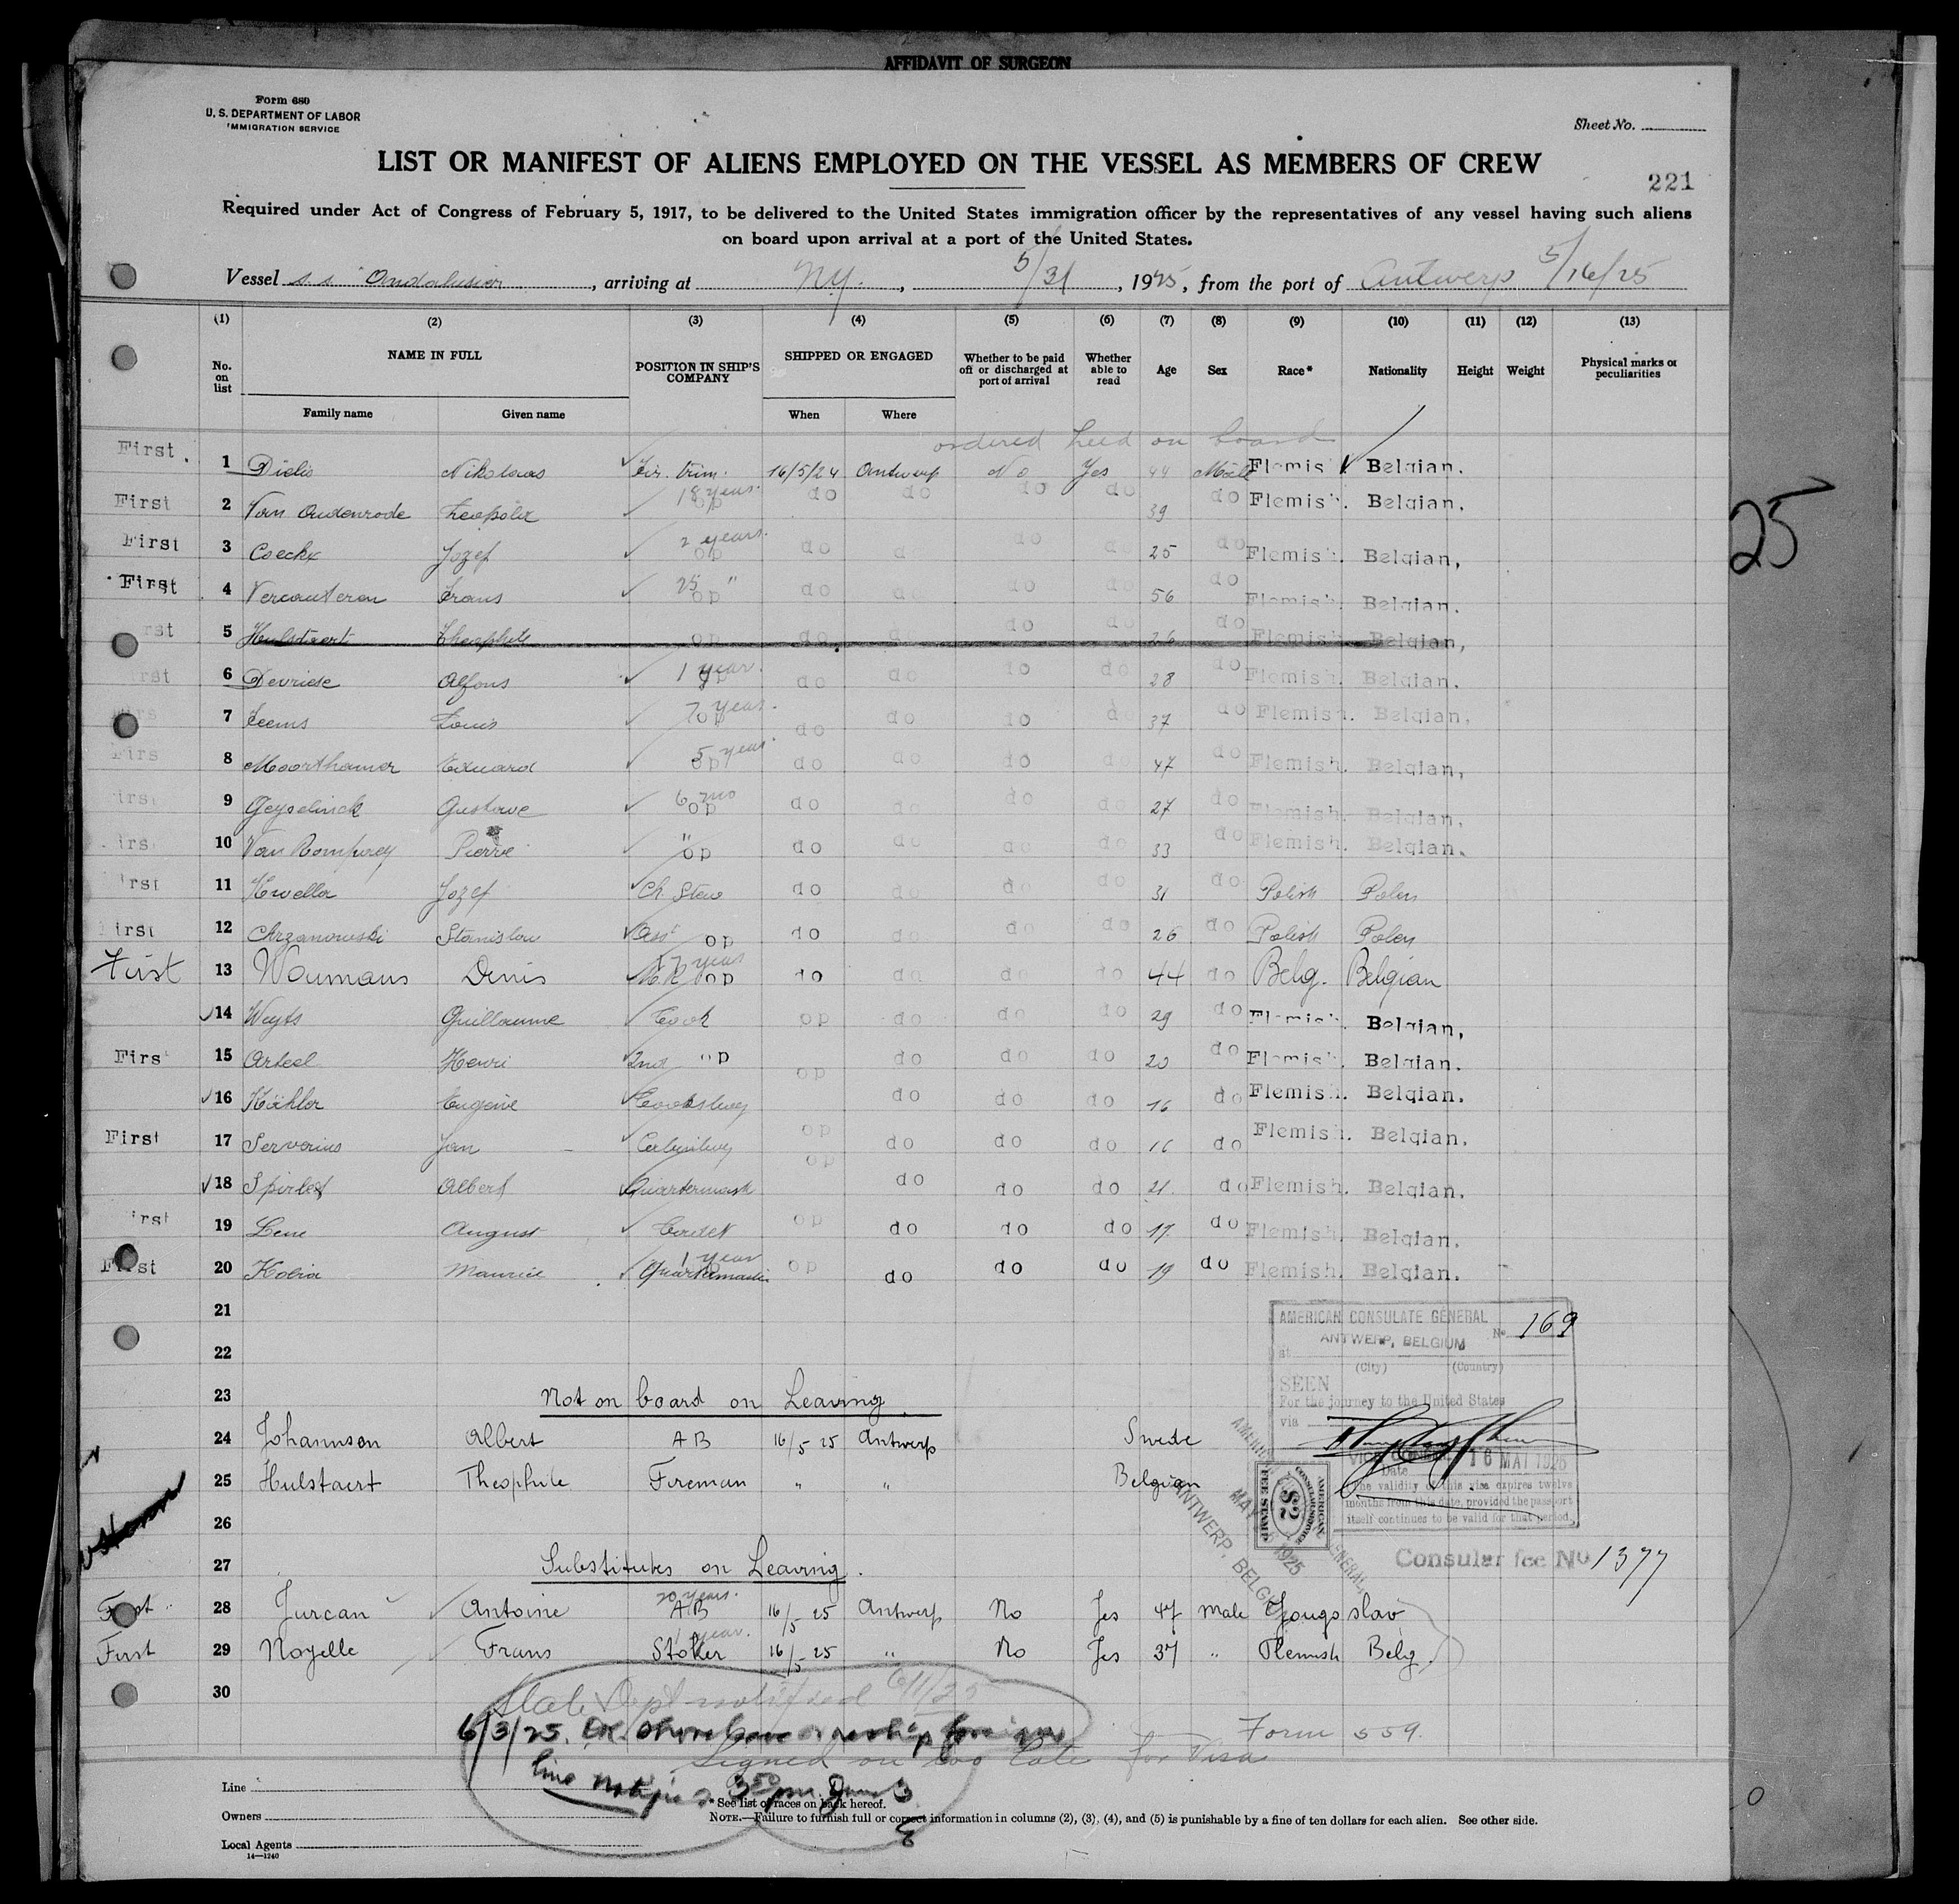 AFFIDAVIT OF SURGEON
Form 680
U. S. DEPARTMENT OF LABOR
IMMIGRATION SERVICE
Sheet No.
LIST OR MANIFEST OF ALIENS EMPLOYED ON THE VESSEL AS MEMBERS OF CREW
221
Required under Act of Congress of February 5, 1917, to be delivered to the United States immigration officer by the representatives of any vessel having such aliens
on board upon arrival at a port of the United States.
Vessel s.s. "Andalusier, arriving at N.Y., 5/31, 1925, from the port of Antwerp 5/16/25
(1) (2) (3) (4) (5) (6) (7) (8) (9) (10) (11) (12) (13)
No. on list NAME IN FULL POSITION IN SHIP'S COMPANY SHIPPED OR ENGAGED Whether to be paid off or discharged at port of arrival Whether able to read Age Sex Race* Nationality Height Weight Physical marks or peculiarities
Family name Given name When Where
ordered held on board
First. 1 Dielis Nikolaas Fir. trim. 16/5/24 Antwerp No Yes 44 Male Flemis Belgian.
18 years.
First 2 Van Oudenrode Leopold do do do do do 39 do Flemish. Belgian.
2 years.
First 3 Coeckx Jozef do do d do do 25 do Flemish. Belgian,
25 "
First 4 Vercauteren Frans do do do do do 56 do Flemish. Belgian.
rst 5 Hulstaert Theophile do do d do do 26 do Flemish. Belgian,
1 year.
irst 6 Devriese Alfons do do do do 28 do Flemish. Belgian.
7 year.
Firs 7 Leems Louis do do do do d 37 do Flemish. Belgian,
5 year.
Firs 8 Moorthamer Eduard do do do do d 47 do Flemish. Belgian,
6 mo
irst 9 Geyselinck Gustave do do do do do 27 do Flemish. Belgian,
"
irs 10 Van Rompaey Pierre do do do do do 33 do Flemish. Belgian.
irst 11 Kwella Jozef Ch. Stew do do do do 31 do Polish Polen
First 12 Chrzanowski Stanislav Asst do do do do do 26 do Polish Polen
17 years
First 13 Woumans Denis do do do do do 44 do Belg. Belgian
14 Weyts Guillaume Cook do do do do 29 do Flemish. Belgian,
Firs 15 Arteel Henri 2nd do do do do do 20 do Flemish. Belgian.
16 Kächler Eugene Cooksboy do do do 16 do Flemish. Belgian.
First 17 Servorius Jan do do do do 16 do Flemish. Belgian.
18 Albert Quartermast do do do do 21 do Flemish. Belgian.
irst 19 Lene August Cadet do do do do 17 do Flemish. Belgian.
1 year
First 20 Maurice Quartermaster do do do do 19 do Flemish. Belgian.
21
22
23 Not on board on Leaving
24 Johannsen Albert AB 16/5 25 Antwerp Swede
25 Hulstaert Theophile Fireman " " Belgian
26
27 Substitutes on Leaving.
20 years.
First 28 Jurcan Antoine AB 16/5 25 Antwerp No Yes 47 Male Yougoslav
1 year.
First 29 Noyelle Frans Stoker 16/5 25 " No Yes 37 " Flemish Belg.
30
AMERICAN CONSULATE GENERAL
at ANTWERP, BELGIUM No 169
(City) (Country)
SEEN
For the journey to the United States
via
Date 16 MAI 1925
The validity of this visa expires twelve
months from this date, provided the passport
itself continues to be valid for that period.
AMERICAN CONSULAR SERVICE
$2
FEE STAMP
ANTWERP, BELGIUM
MAY 1925
Consular fee No 1377
State Dept notified 6/1/25
6/3/25.
Form 559.
Signed on too late for Visa
Line notified 3 50 pm June 3
Line
Owners
Local Agents
14—1240
* See list of races on back hereof.
NOTE.—Failure to furnish full or correct information in columns (2), (3), (4), and (5) is punishable by a fine of ten dollars for each alien. See other side.
25